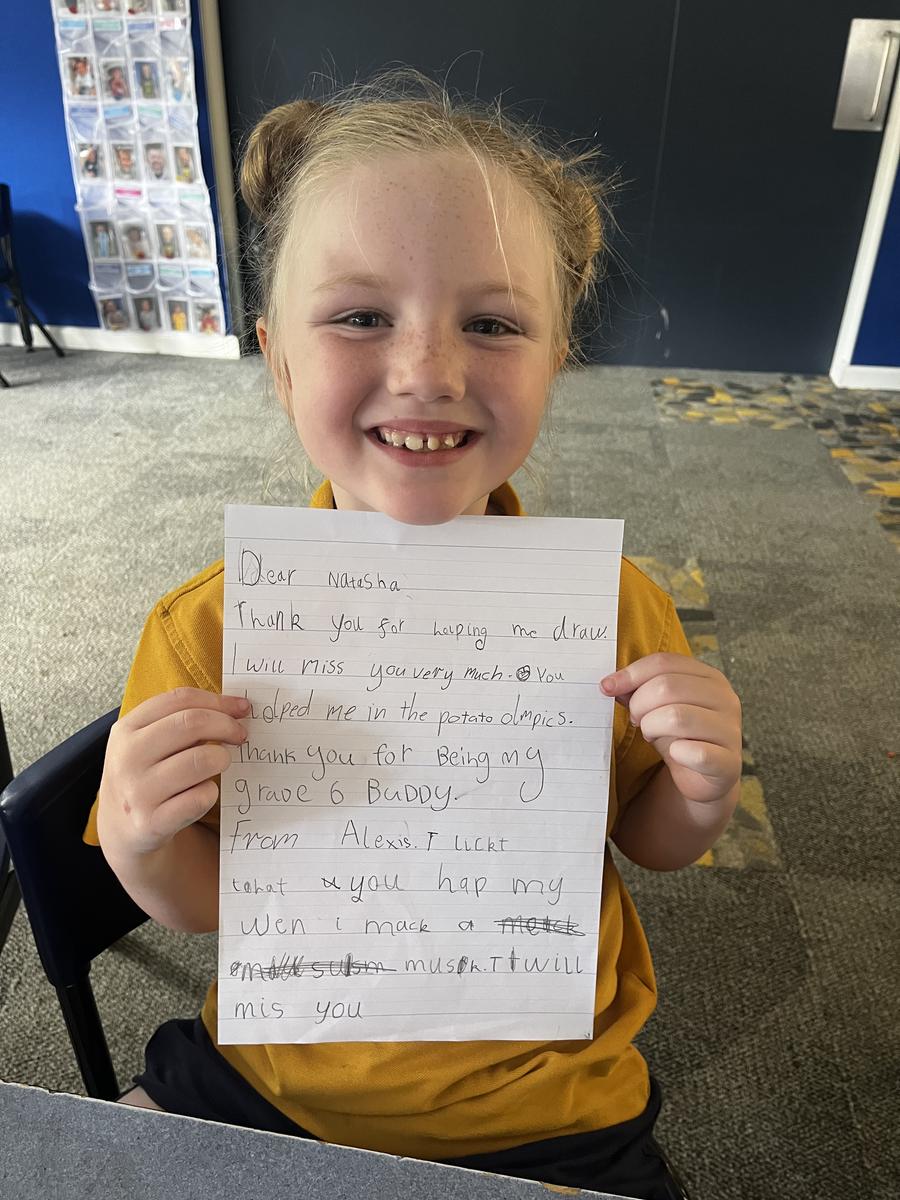 Dear Natasha
Thank you for helping me draw.
I will miss you very much. You
helped me in the potato olmpics.
Thank you for Being my
grade 6 BuDDy.
From Alexis. I lickt
tahat you hap my
wen i mack a
I will
mis you